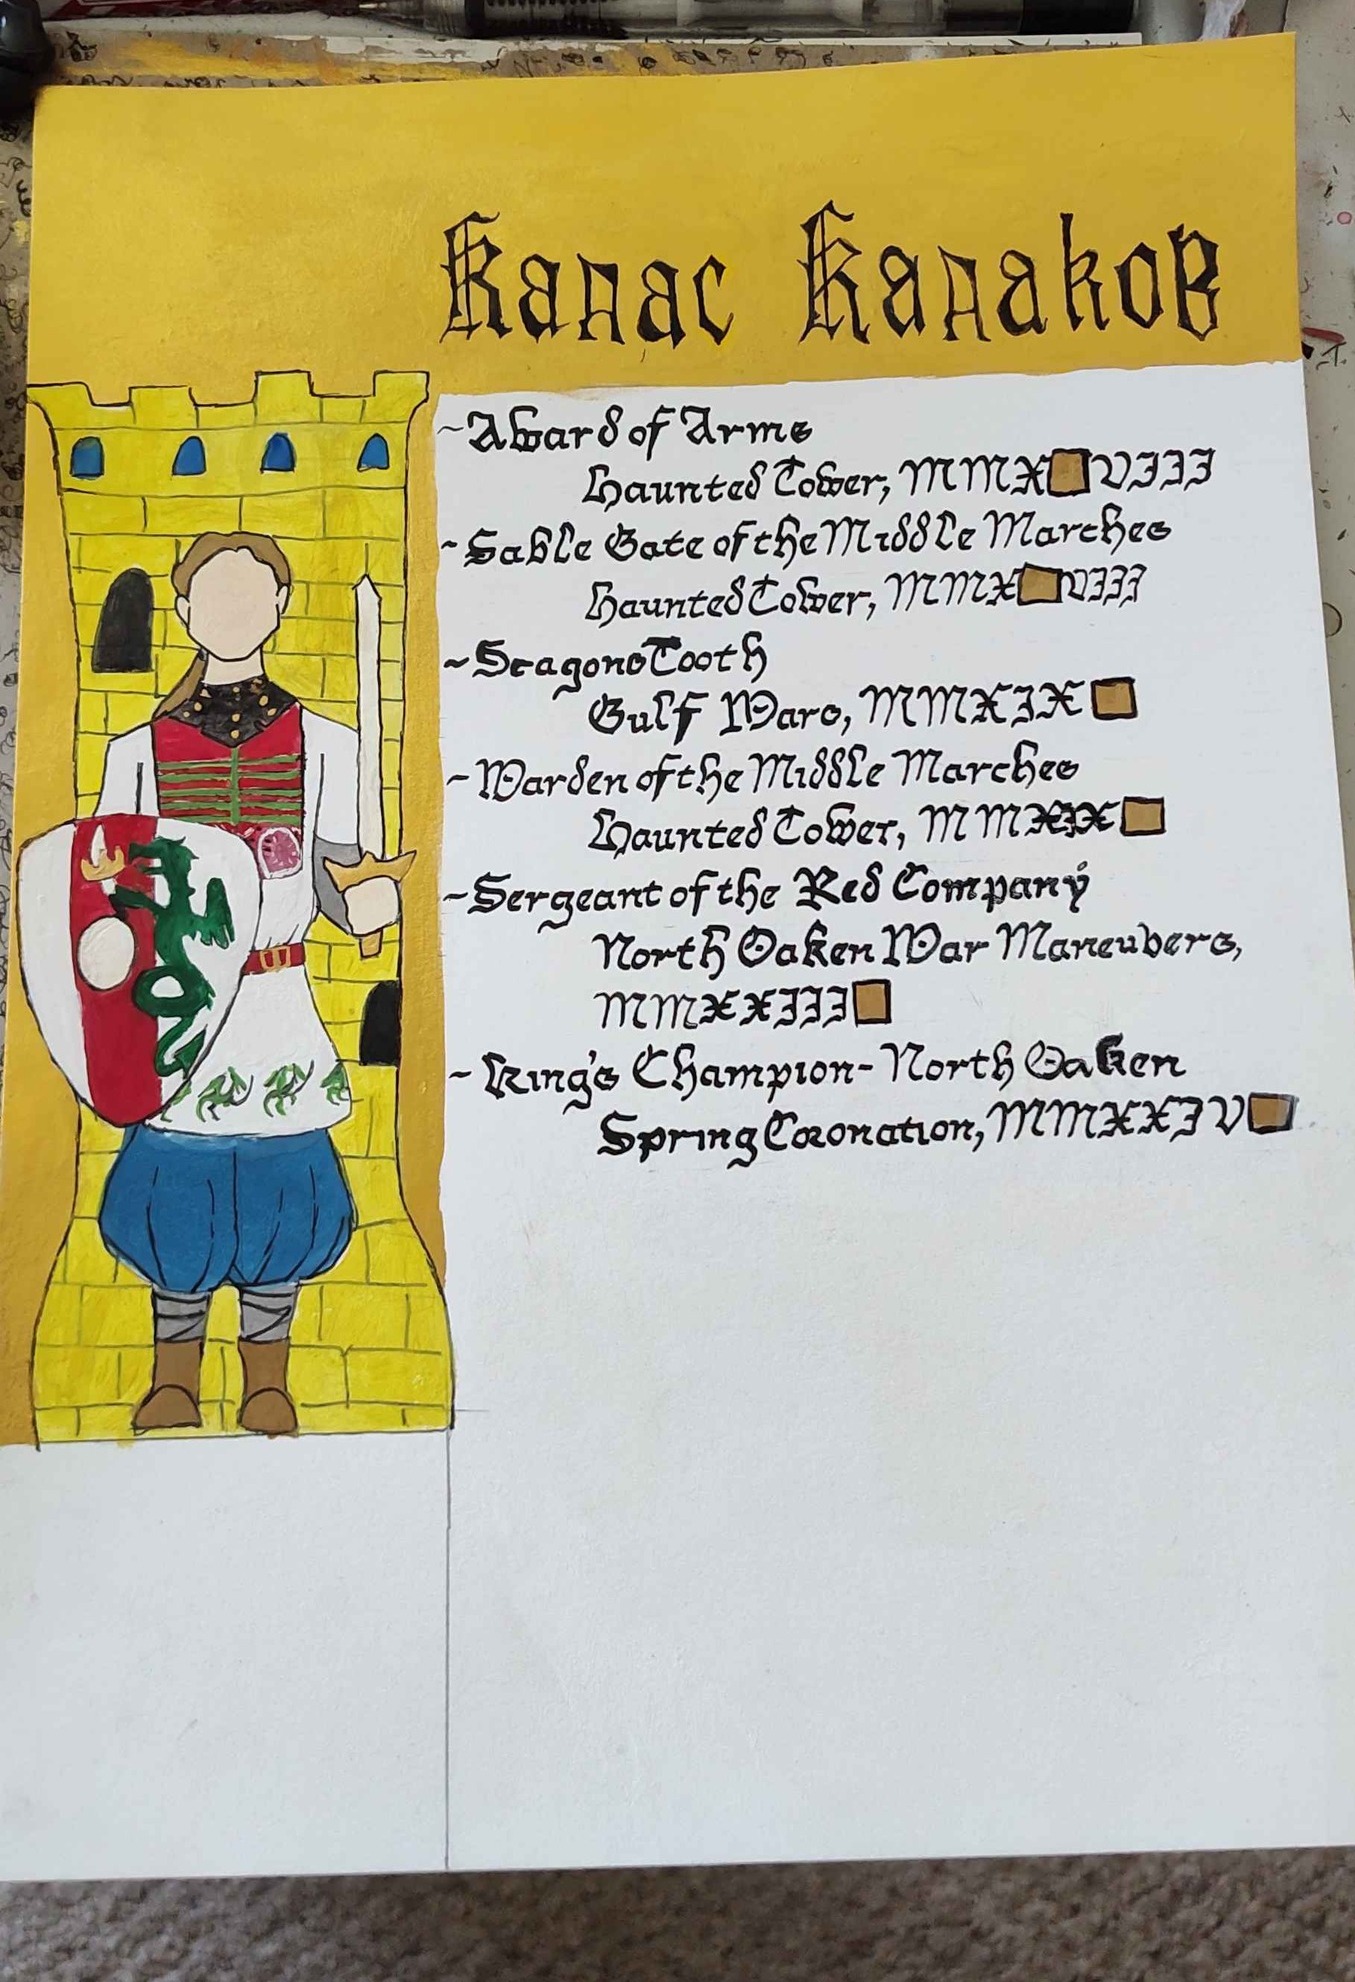 Калас Калаков
~Award of Arms
Haunted Tower, MMX VIII
~Sable Gate of the Middle Marches
Haunted Tower, MMX VIII
~Dragons Tooth
Gulf Wars, MMXIX
~Warden of the Middle Marches
Haunted Tower, MMXIX
~Sergeant of the Red Company
North Oaken War Maneuvers,
MMXXIII
~King's Champion- North Oaken
Spring Coronation, MMXXIV